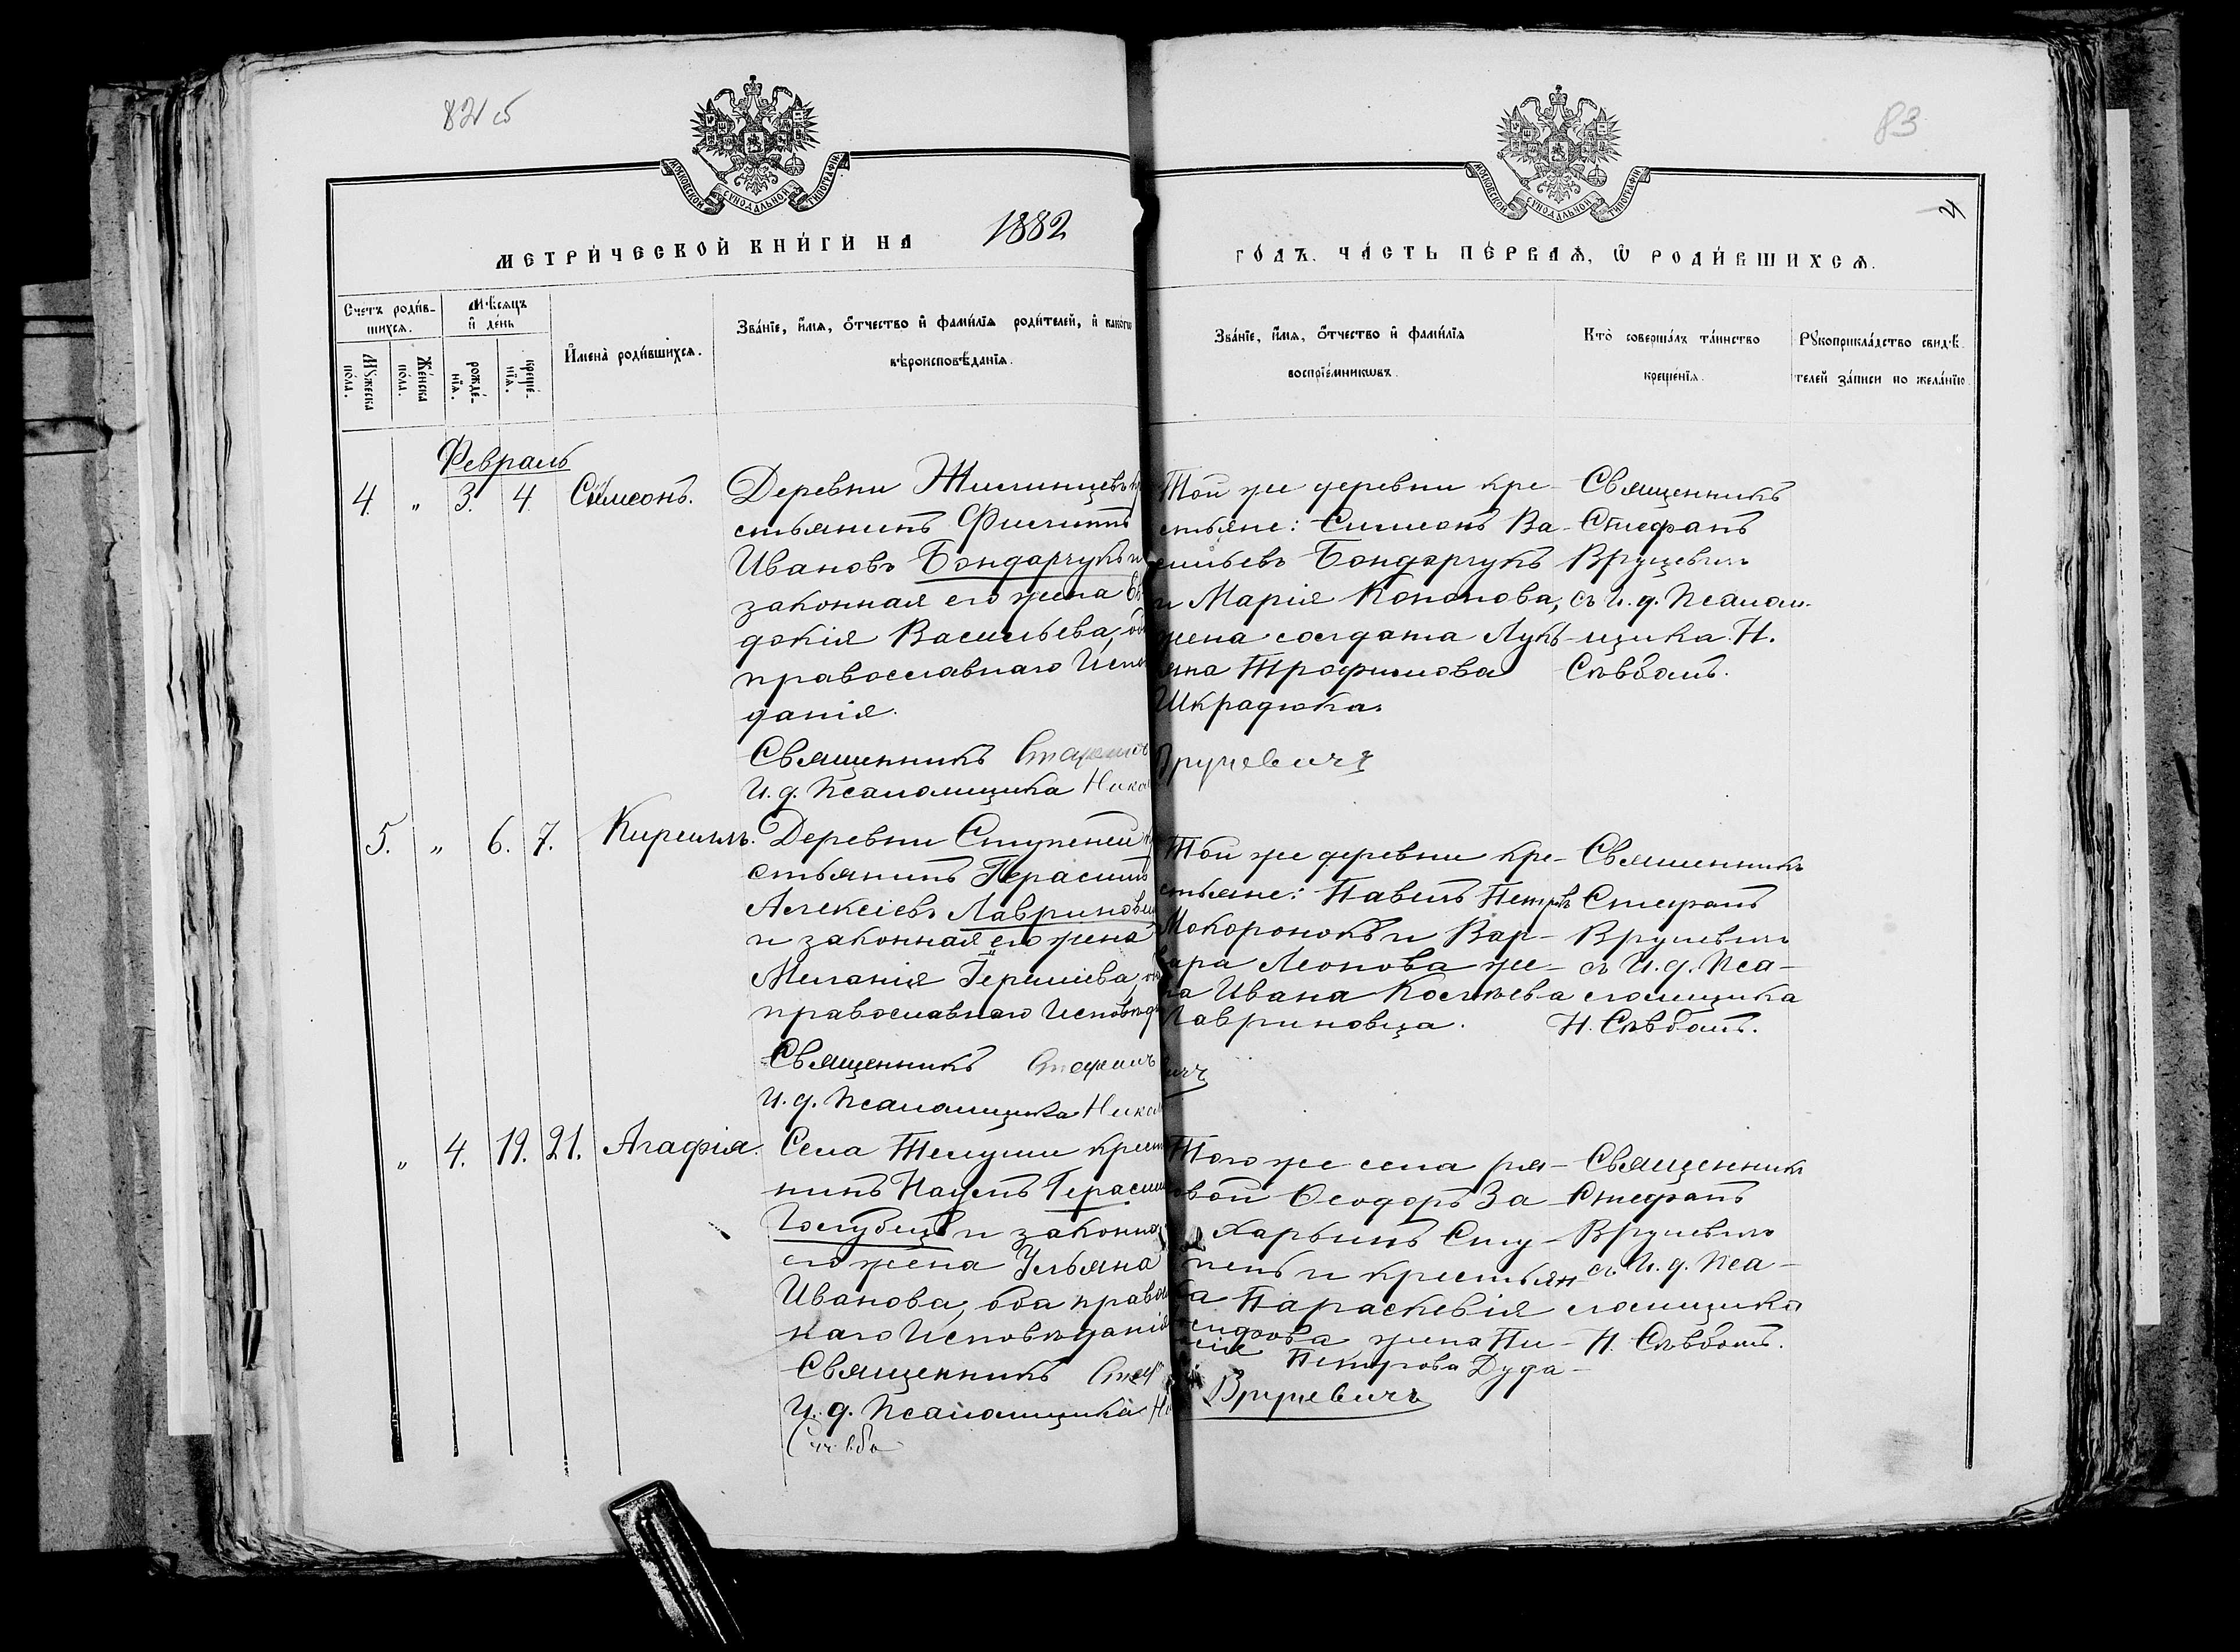 82 об
83
4
МОСКОВСКОЙ СУНОДАЛЬНОЙ ТИПОГРАФІИ
МОСКОВСКОЙ СУНОДАЛЬНОЙ ТИПОГРАФІИ
МЕТРИ́ЧЕСКОЙ КНИ́ГИ НА 1882
ГО́ДЪ. ЧА́СТЬ ПЕ́РВАѦ, Ѡ РОДИ́ВШИХСѦ.
Счетъ роди́в-
шихсѧ.
Мꙋжеска
по́ла.
Же́нска
по́ла.
Мѣсѧцъ
и де́нь
рожде́-
нїѧ.
креще́-
нїѧ.
Имена̀ роди́вшихсѧ.
Зва́нїе, и҆́мѧ, ѻ҆́тчество и҆ фами́лїѧ роди́телей, и҆ како́гѡ
вѣроисповѣ́данїѧ.
Зва́нїе, и҆́мѧ, ѻ҆́тчество и҆ фами́лїѧ
воспрїе́мникѡвъ.
Кто̀ соверша́лъ та́инство
креще́нїѧ.
Рꙋкоприкла́дство свидѣ́-
телей за́писи по жела́нїю.
Февраль
4. " 3. 4. Симеонъ.
Деревни Жилинцевъ
стьянинъ Филиппъ
Ивановъ Бондарчукъ и
законная его жена Ев
докія Васильева, об
православнаго Испо
данія.
Священникъ Стефанъ
И. д. Псаломщика Никол
Той же деревни кре-
стьяне: Симеонъ Ва-
сильевъ Бондарчукъ
и Марія Кононова,
жена солдата Лукь-
яна Трофимова
Шкрадюка.
Вручевичъ
Священникъ
Стефанъ
Вручевичъ
съ И. д. Псалом-
щика Н.
Слѣвбомъ.
5. " 6. 7. Кириллъ.
Деревни Ступеней
стьянинъ Герасимъ
Алексіевъ Лавринов
и законная его жена
Меланія Іереміева,
православнаго Исповѣд
Священникъ Стефанъ
И. д. Псаломщика Никол
Той же деревни кре-
стьяне: Павелъ Петровъ
Мокоронокъ и Вар-
вара Леонова же-
на Ивана
Лавриновца.
вичъ
Священникъ
Стефанъ
Вручевичъ
съ И. д. Пса-
ломщика
Н. Слѣвбомъ.
" 4. 19. 21. Агафія.
Села Телуши крест
нинъ Наумъ Герасим
Голубецъ и законна
его жена Ульяна
Иванова, оба правос
наго Исповѣданія
Священникъ Стеф
И. д. Псаломщика Н
Того же села ря-
довой Ѳеодоръ За-
харьинъ Сту-
пень и крестьян-
ка Параскевія
жена
Петрова Дуда-
Вручевичъ
Священникъ
Стефанъ
Вручевичъ
съ И. д. Пса-
ломщика
Н. Слѣвбомъ.